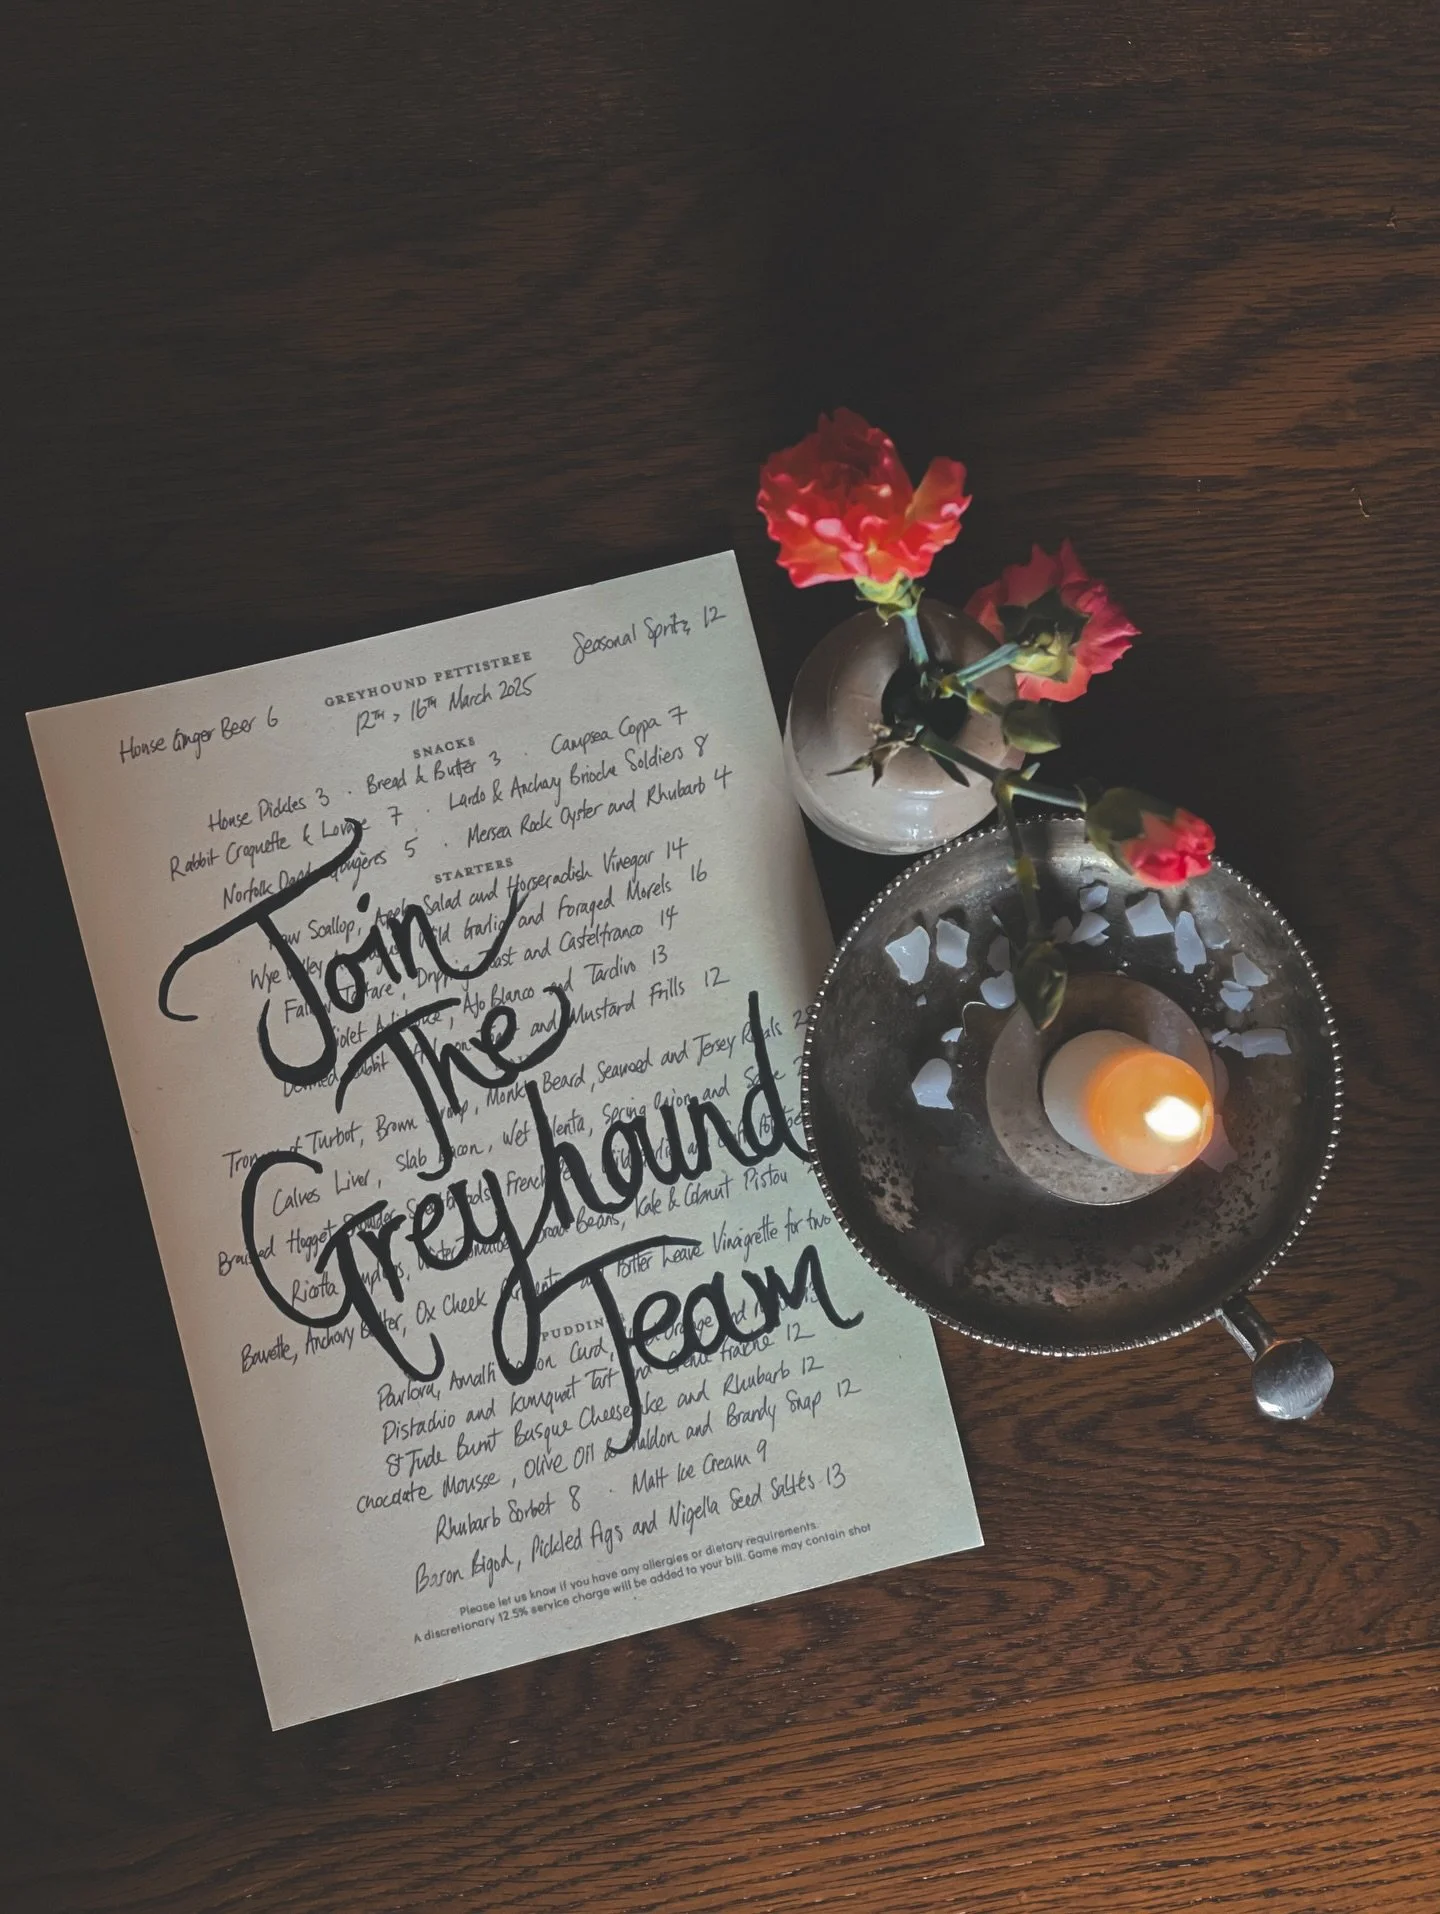 Seasonal Spritz 12
GREYHOUND PETTISTREE
House Ginger Beer 6
12TH > 16TH March 2025
SNACKS
House Pickles 3 . Bread & Butter 3 . Campsea Coppa 7
Rabbit Croquette & Lovage 7 . Lardo & Anchovy Brioche Soldiers 8
Norfolk Gougères 5 . Mersea Rock Oyster and Rhubarb 4
STARTERS
Scallop, Apple Salad and Horseradish Vinegar 14
Wye Valley Wild Garlic and Foraged Morels 16
Tartare, Dripping Toast and Castelfranco 14
Violet Ajo Blanco and Tardivo 13
Rabbit and Mustard Frills 12
Turbot, Brown Shrimp, Monks Beard, Seaweed and Jersey Royals
Calves Liver, Slab Bacon, Wet Polenta, Spring Onion and
Braised Hogget Shoulder, Sweetbreads, French
Ricotta Dumplings, Winter Tomatoes, Broad Beans, Kale & Cobnut Pistou
Bavette, Anchovy Butter, Ox Cheek and Bitter Leave Vinaigrette for two
PUDDING
Pavlova, Amalfi Lemon Curd, Orange and 13
Pistachio and Kumquat Tart and Crème Fraîche 12
St Jude Burnt Basque Cheesecake and Rhubarb 12
Chocolate Mousse, Olive Oil & Maldon and Brandy Snap 12
Rhubarb Sorbet 8 . Malt Ice Cream 9
Baron Bigod, Pickled Figs and Nigella Seed Saltés 13
Please let us know if you have any allergies or dietary requirements.
A discretionary 12.5% service charge will be added to your bill. Game may contain shot
Join
The
Greyhound
Team